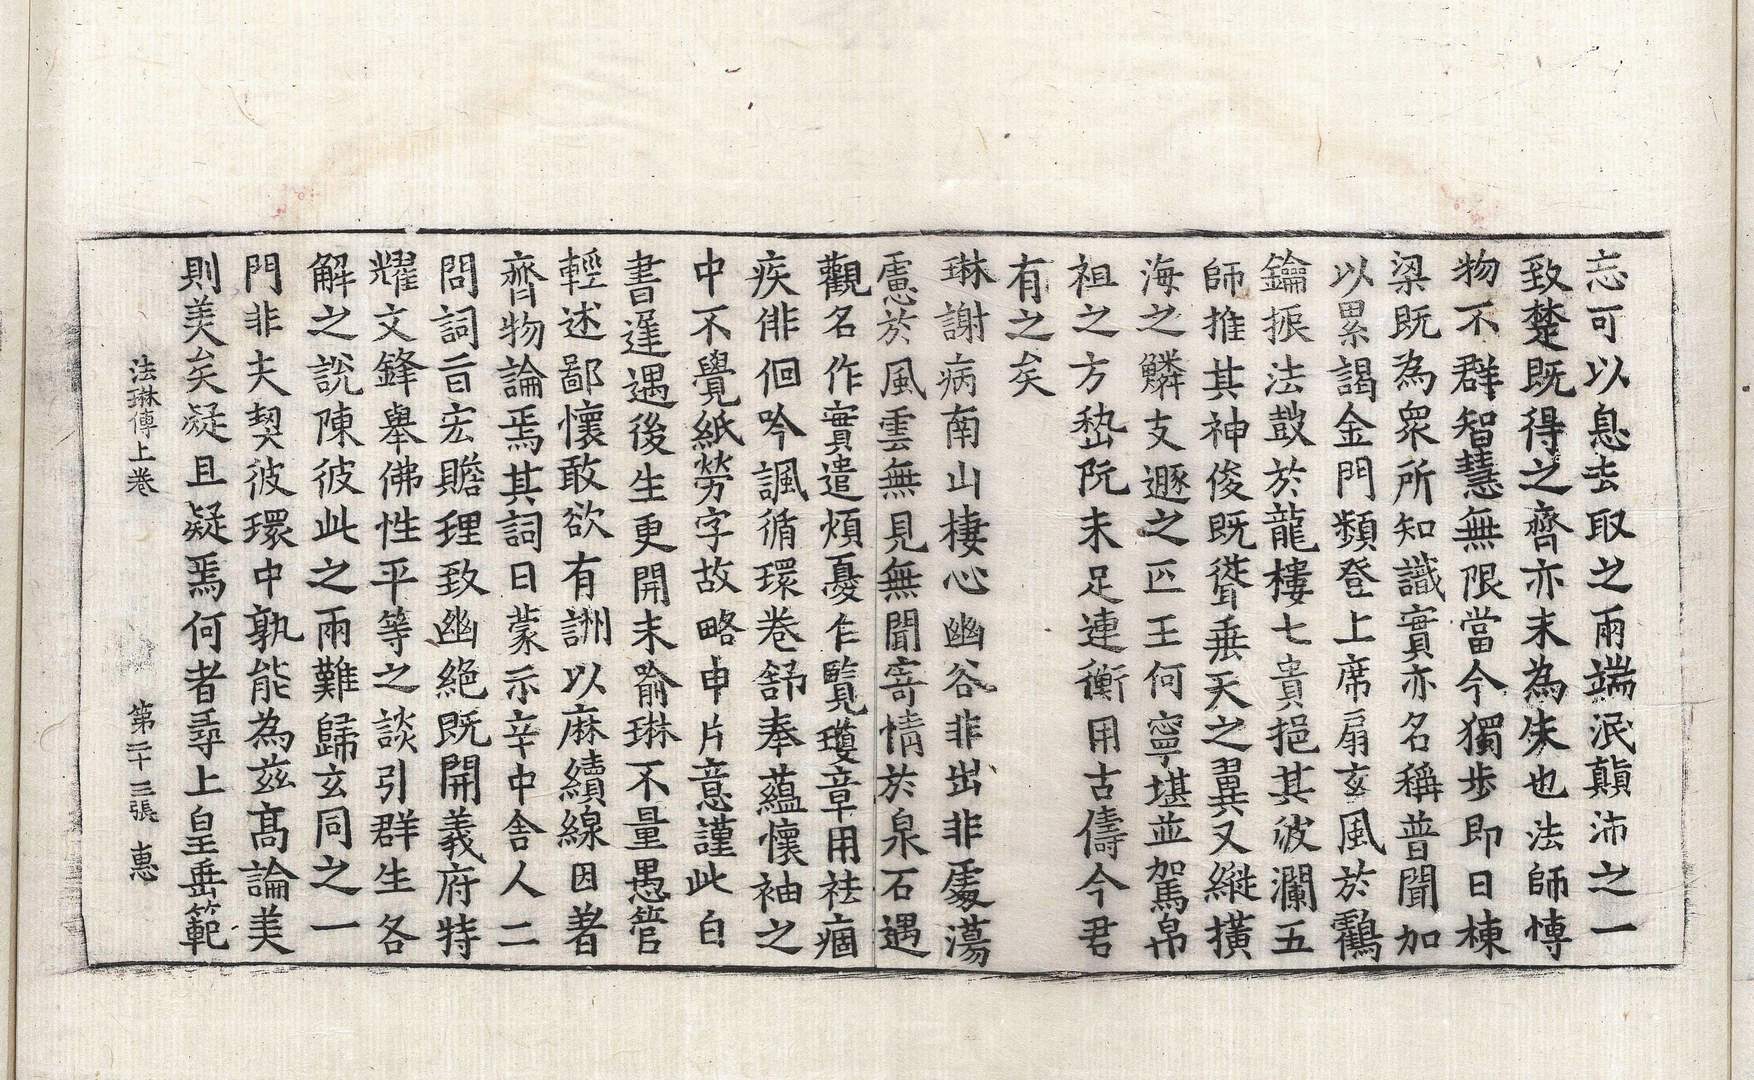 忘可以息去取之兩端泯顛沛之一
致楚既得之齊亦未為失也法師博
物不群智慧無限當今獨步即日棟
梁既為衆所知識實亦名稱普聞加
以累謁金門頻登上席扇玄風於鶴
鑰振法鼓於龍樓七貴挹其波瀾五
師推其神俊既聳垂天之翼又縱橫
海之鱗支遯之匹王何寧堪並駕帛
祖之方嵆阮未足連衡用古儔今君
有之矣
琳謝病南山棲心幽谷非出非處蕩
慮於風雲無見無聞寄情於泉石遇
觀名作實遣煩憂乍覽瓊章用祛痼
疾俳佪吟諷循環卷舒奉蘊懷袖之
中不覺紙勞字故略申片意謹此白
書遲遇後生更開未喻琳不量愚管
輕述鄙懷敢欲有詶以麻續線因著
齊物論焉其詞曰蒙示辛中舍人二
問詞旨宏贍理致幽絕既開義府特
耀文鋒舉佛性平等之談引群生各
解之說陳彼此之兩難歸玄同之一
門非夫契彼環中孰能為茲高論美
則美矣疑且疑焉何者尋上皇垂範
法琳傳上卷 第二十三張 惠